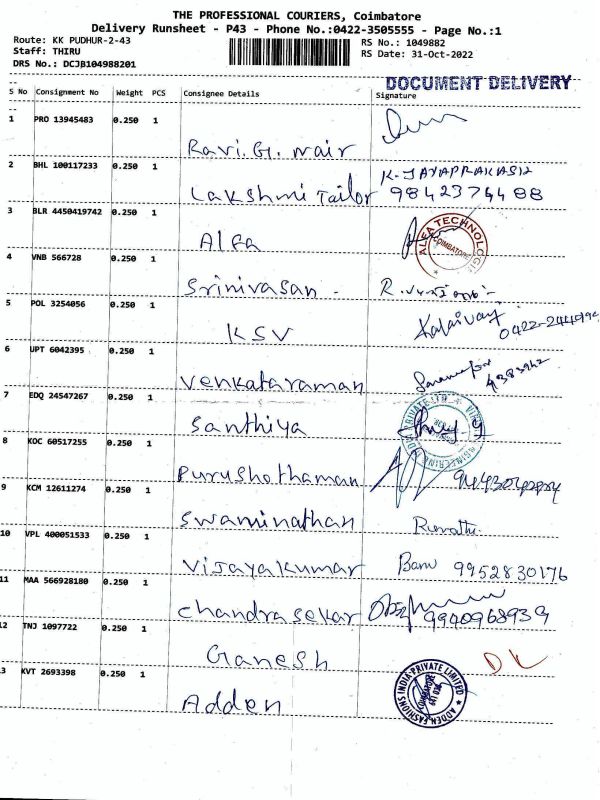 THE PROFESSIONAL COURIERS, Coimbatore
Delivery Runsheet - P43 - Phone No.:0422-3505555 - Page No.:1
Route: KK PUDHUR-2-43 RS No.: 1049882
Staff: THIRU RS Date: 31-Oct-2022
DRS No.: DCJB104988201
DOCUMENT DELIVERY
S No Consignment No Weight PCS Consignee Details Signature
1 PRO 13945483 0.250 1
Ravi.G. nair
2 BHL 100117233 0.250 1 K-JAYAPRAKASH
Lakshmi Tailor 9842374488
3 BLR 4450419742 0.250 1
Alfa ALFA TECHNOLOGIES COIMBATORE
4 VNB 566728 0.250 1
Srinivasan -
5 POL 3254056 0.250 1
KSV Kalaivay
6 UPT 6042395 0.250 1
Venkataraman
7 EDQ 24547267 0.250 1
Santhiya
8 KOC 60517255 0.250 1
Purushothaman
9 KCM 12611274 0.250 1
Swaminathan Revathi
10 VPL 400051533 0.250 1
Vijayakumar Banu 9952830176
11 MAA 566928180 0.250 1
Chandrasekar 9940968939
12 TNJ 1097722 0.250 1
Ganesh DK
3 KVT 2693398 0.250 1
Adden ADDEN FASHIONS INDIA PRIVATE LIMITED